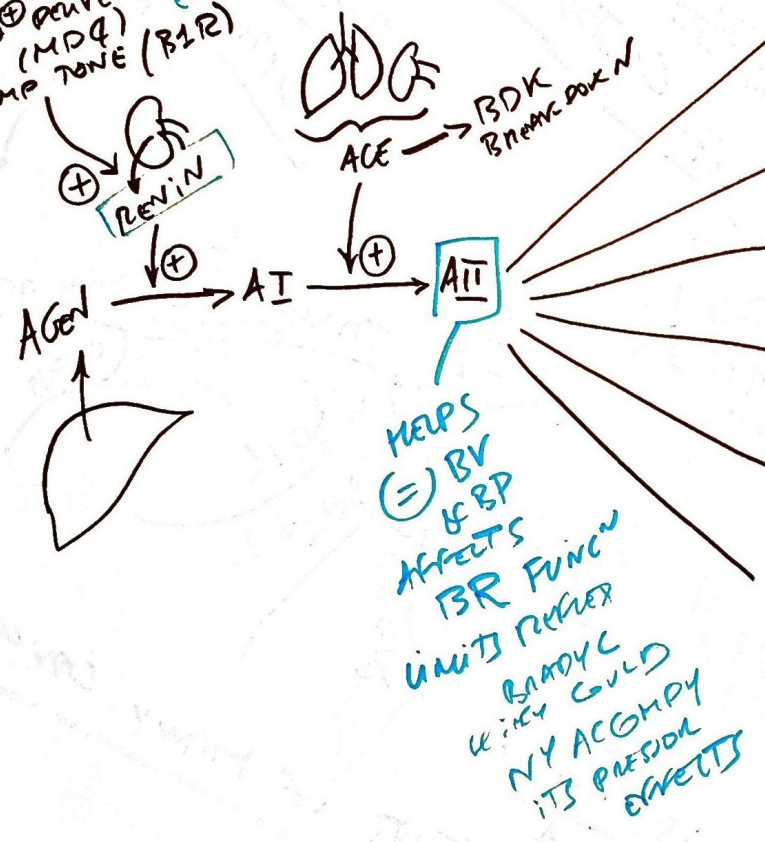 (MD4)
TONE (B1R)
+
RENIN
+
ACE
BDK
BREAKDOWN
+
AGEN
AI
AII
HELPS
(=) BV
& BP
AFFECTS
BR FUNCN
LIMITS REFLEX
BRADYC
COULD
NY ACCOMPY
ITS PRESSOR
EFFECTS